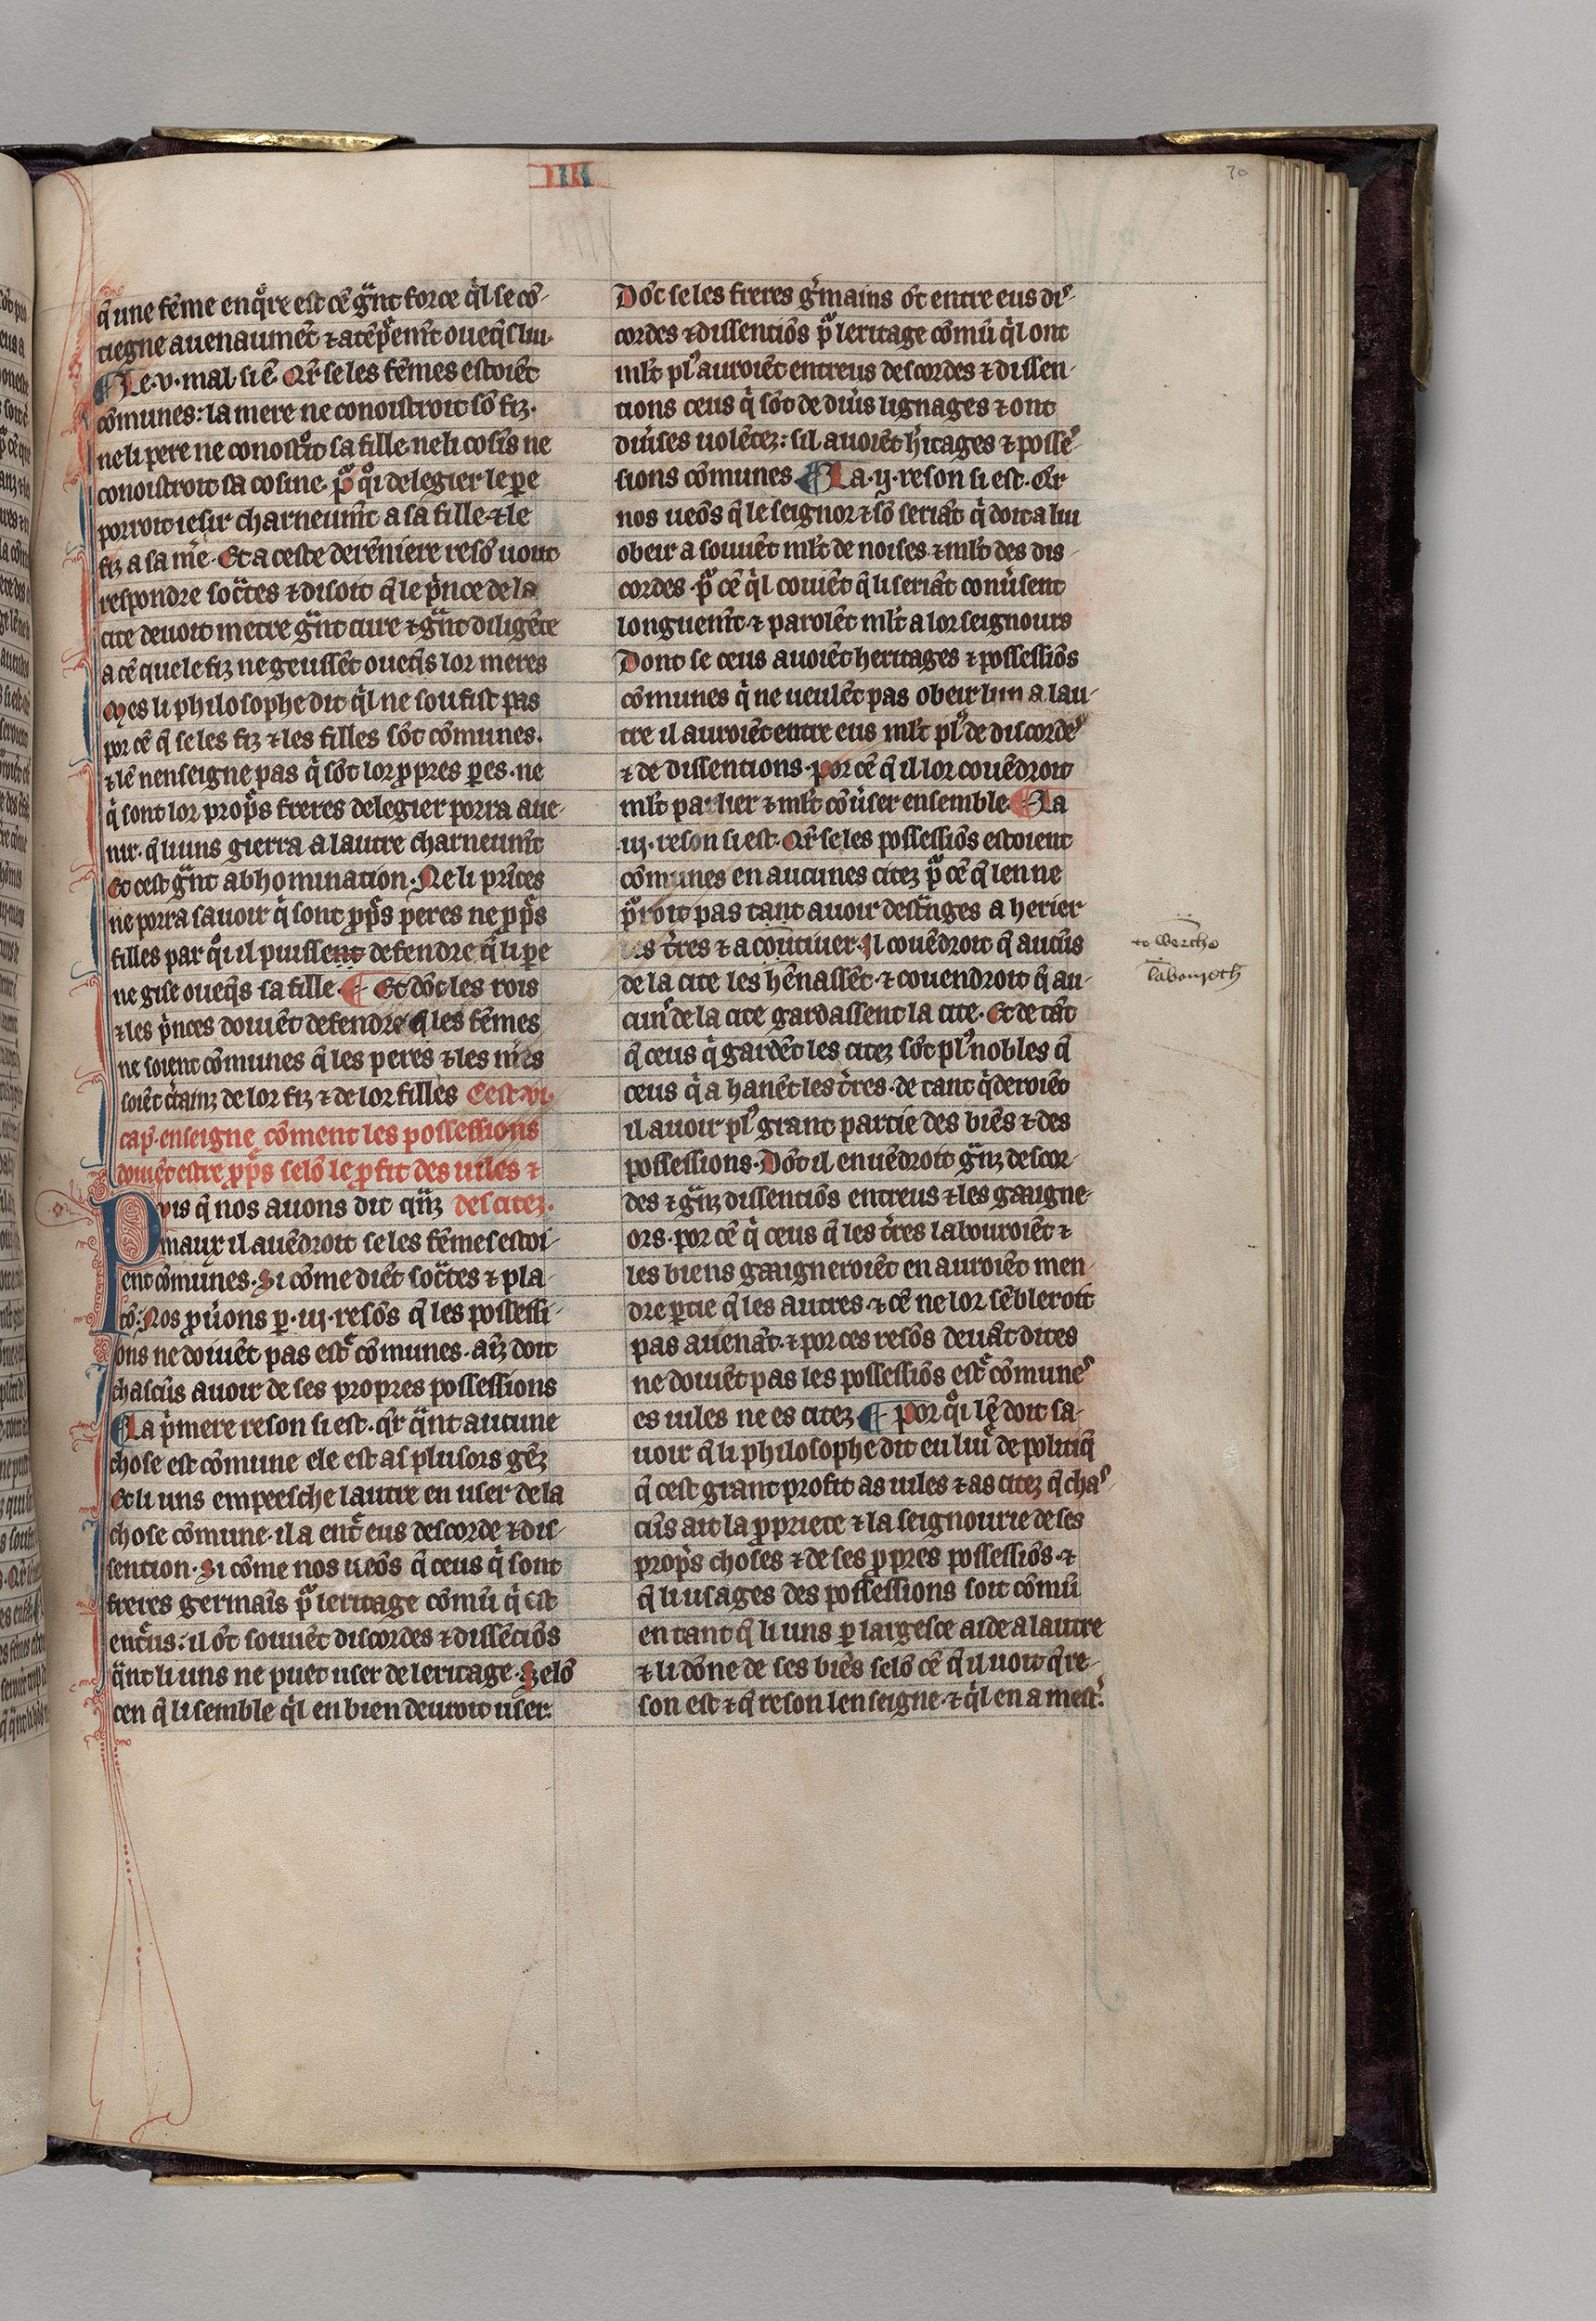 IIII
70
q̃ une fẽme enq̃re est cẽ gͣnt force qͥl se cõ-
tiegne auenaumẽt ⁊ atẽpͤemẽt oueq̃s lui.
¶ Le .v. mal si ẽ. Qͣr se les fẽmes estoiẽt
cõmunes: la mere ne conoistroit sõ fiz.
ne li pere ne conostͦit sa fille ne li cosĩs ne
conoistroit sa cosine. pͦ qͦi de legier le pere
porroit iesir charneumẽt a sa fille ⁊ le
fiz a sa mͤe. Et a ceste derẽniere resõ uout
respondre socͣtes ⁊ disoit q̃ le pͥnce de la
cite deuoit metre gͣnt cure ⁊ gͣnt diligẽce
a cẽ que le fiz ne geussẽt oueq̃s lor meres
Mes li philosophe dit qͥl ne soufist pas
por cẽ q̃ se les fiz ⁊ les filles sõt cõmunes.
⁊ lẽ nenseigne pas qͥ sõt lor ꝓpres ꝑes. ne
qͥ sont lor propͤs freres de legier porra aue-
nir. q̃ li uns gierra a lautre charneumẽt
Et cest gͣnt abhomination. Ne li prĩces
ne porra sauoir qͥ sont ꝓpͤs peres ne ꝓpͤs
filles par qͦi il puissent defendre q̃ li ꝑe
ne gise oueq̃s sa fille. ¶ Et dõc les rois
⁊ les pͥnces doiuẽt defendre q̃ les fẽmes
ne soient cõmunes q̃ les peres ⁊ les mͤes
soiẽt cͥtainz de lor fiz ⁊ de lor filles Cest .vi.
cap̃. enseigne cõment les possessions
doiuẽt estre ꝓpͤs selõ le ꝓfit des uiles ⁊
Puis q̃ nos auons dit qͣnz des citez.
maux il auẽdroit se les fẽmes estoi-
ent cõmunes. Si cõme diẽt socͣtes ⁊ pla-
tõ: Nos ꝓuͥons ꝑ .iij. resõs q̃ les possessi-
ons ne doiuẽt pas estͤ cõmunes. aĩz doit
chascũs auoir de ses propres possessions
¶ La pͥmere reson si est. qͣr qͣnt aucune
chose est cõmune ele est as plusors gẽz
Et li uns empeesche lautre en user de la
chose cõmune. il a entͤ eus descorde ⁊ dis-
sention. Si cõme nos ueõs q̃ ceus qͥ sont
freres germaĩs pͦ leritage cõmũ qͥ est
entͤus: il õt souuẽt discordes ⁊ dissẽciõs
qͣnt li uns ne puet user de leritage. Selõ
cen q̃ li semble qͥl en bien deuroit user.
Dõc se les freres gͤmains õt entre eus des-
cordes ⁊ dissentiõs pͦ leritage cõmũ qͥl ont
ml't plꝰ auroiẽt entreus descordes ⁊ dissen-
tions ceus qͥ sõt de diuͤs lignages ⁊ ont
diuͤses uolẽtez: sil auoiẽt hͤitages ⁊ posses-
sions cõmunes. ¶ La .ij. reson si est. Qͣr
nos ueõs q̃ le seignor ⁊ sõ seriãt qͥ doit a lui
obeir a souuẽt ml't de noises ⁊ ml't des dis-
cordes. pͦ cẽ qͥl couiẽt q̃ li seriãt conuͤsent
longuemẽt ⁊ parolẽt ml't a lor seignours
Dont se ceus auoiẽt heritages ⁊ possessiõs
cõmunes qͥ ne ueulẽt pas obeir lun a lau-
tre il auroiẽt entre eus ml't plꝰ de discordes
⁊ de dissentions. por cẽ q̃ il lor couẽdroit
ml't parlier ⁊ ml't cõuͤser ensemble ¶ La
.iij. reson si est. Qͣr se les possessiõs estoient
cõmunes en aucunes citez pͦ cẽ q̃ len ne
pͦroit pas tant auoir destͣnges a herier
les tͤres ⁊ a coutiuer. Il couẽdroit q̃ aucũs
de la cite les hẽnassẽt. ⁊ couendroit q̃ au-
cunͥ de la cite gardassent la cite. Et de tãt
q̃ ceus qͥ gardẽt les citez sõt plꝰ nobles q̃
ceus qͥ a hanẽt les tͤres. de tant qͥ deroiẽt
il auoir plꝰ grant partie des biẽs ⁊ des
possessions. Dõt il en uẽdroit gͣnz descor-
des ⁊ gͣnz dissentiõs entreus ⁊ les gaaigne-
ors. por cẽ qͥ ceus q̃ les tͤres labouroiẽt ⁊
les biens gaaigneroiẽt en auroiẽt men-
dre ꝑtie q̃ les autres. ⁊ cẽ ne lor sẽbleroit
pas auenãt. ⁊ por ces resõs deuãt dites
ne doiuẽt pas les possessiõs estͤ cõmunes
es uiles ne es citez ¶ Por qͦi lẽ doit sa-
uoir q̃ li philosophe dit eu liuͤ de politiq̃
q̃ cest grant profit as uiles ⁊ as citez q̃ chas-
cũs ait la ꝓpriete ⁊ la seignourie de ses
propͤs choses ⁊ de ses ꝓpres possessiõs. ⁊
q̃ li usages des possessions soit cõmũ
en tant q̃ li uns ꝑ largesce aide a lautre
⁊ li dõne de ses biẽs selõ cẽ q̃ il uoit q̃ re-
son est ⁊ q̃ reson lenseigne. ⁊ qͥl en a mestͥ.
to werche
laboureth